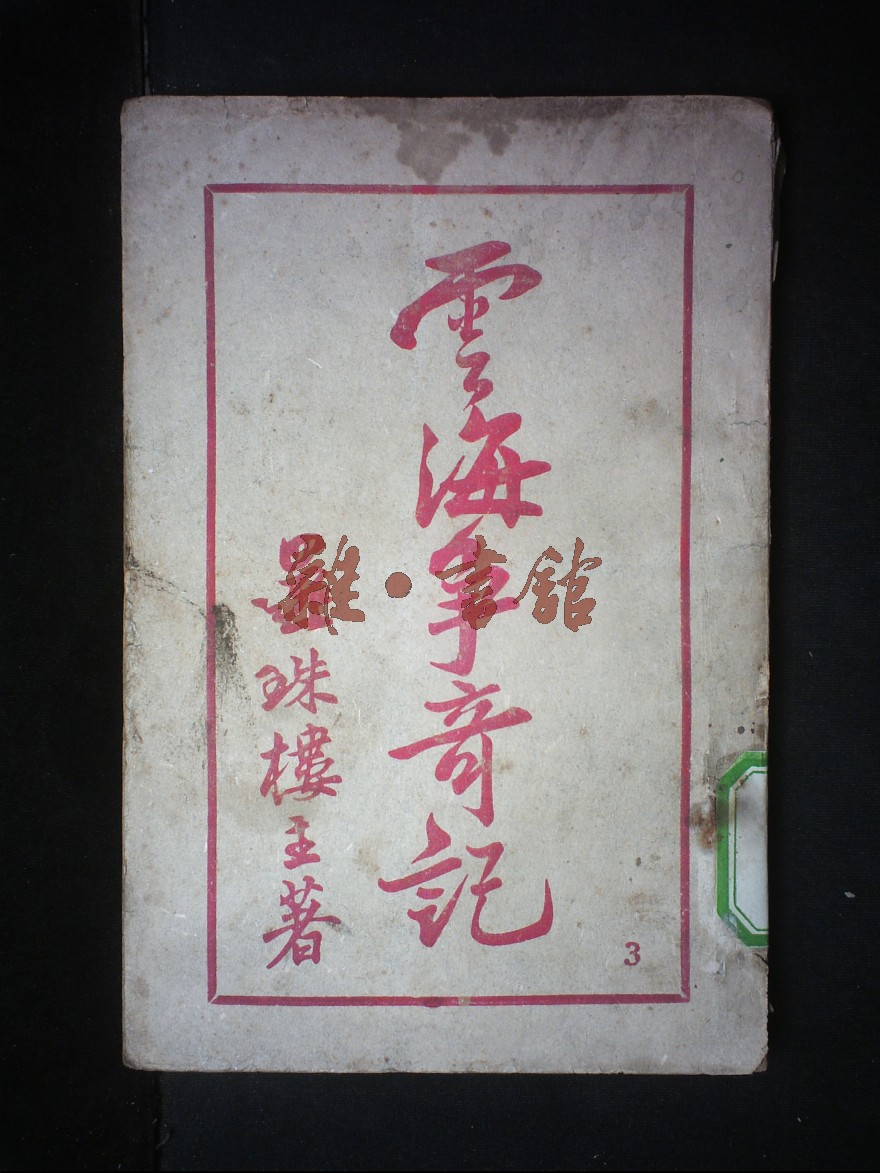 雲海爭奇記
還珠樓主著
3
雜·書館